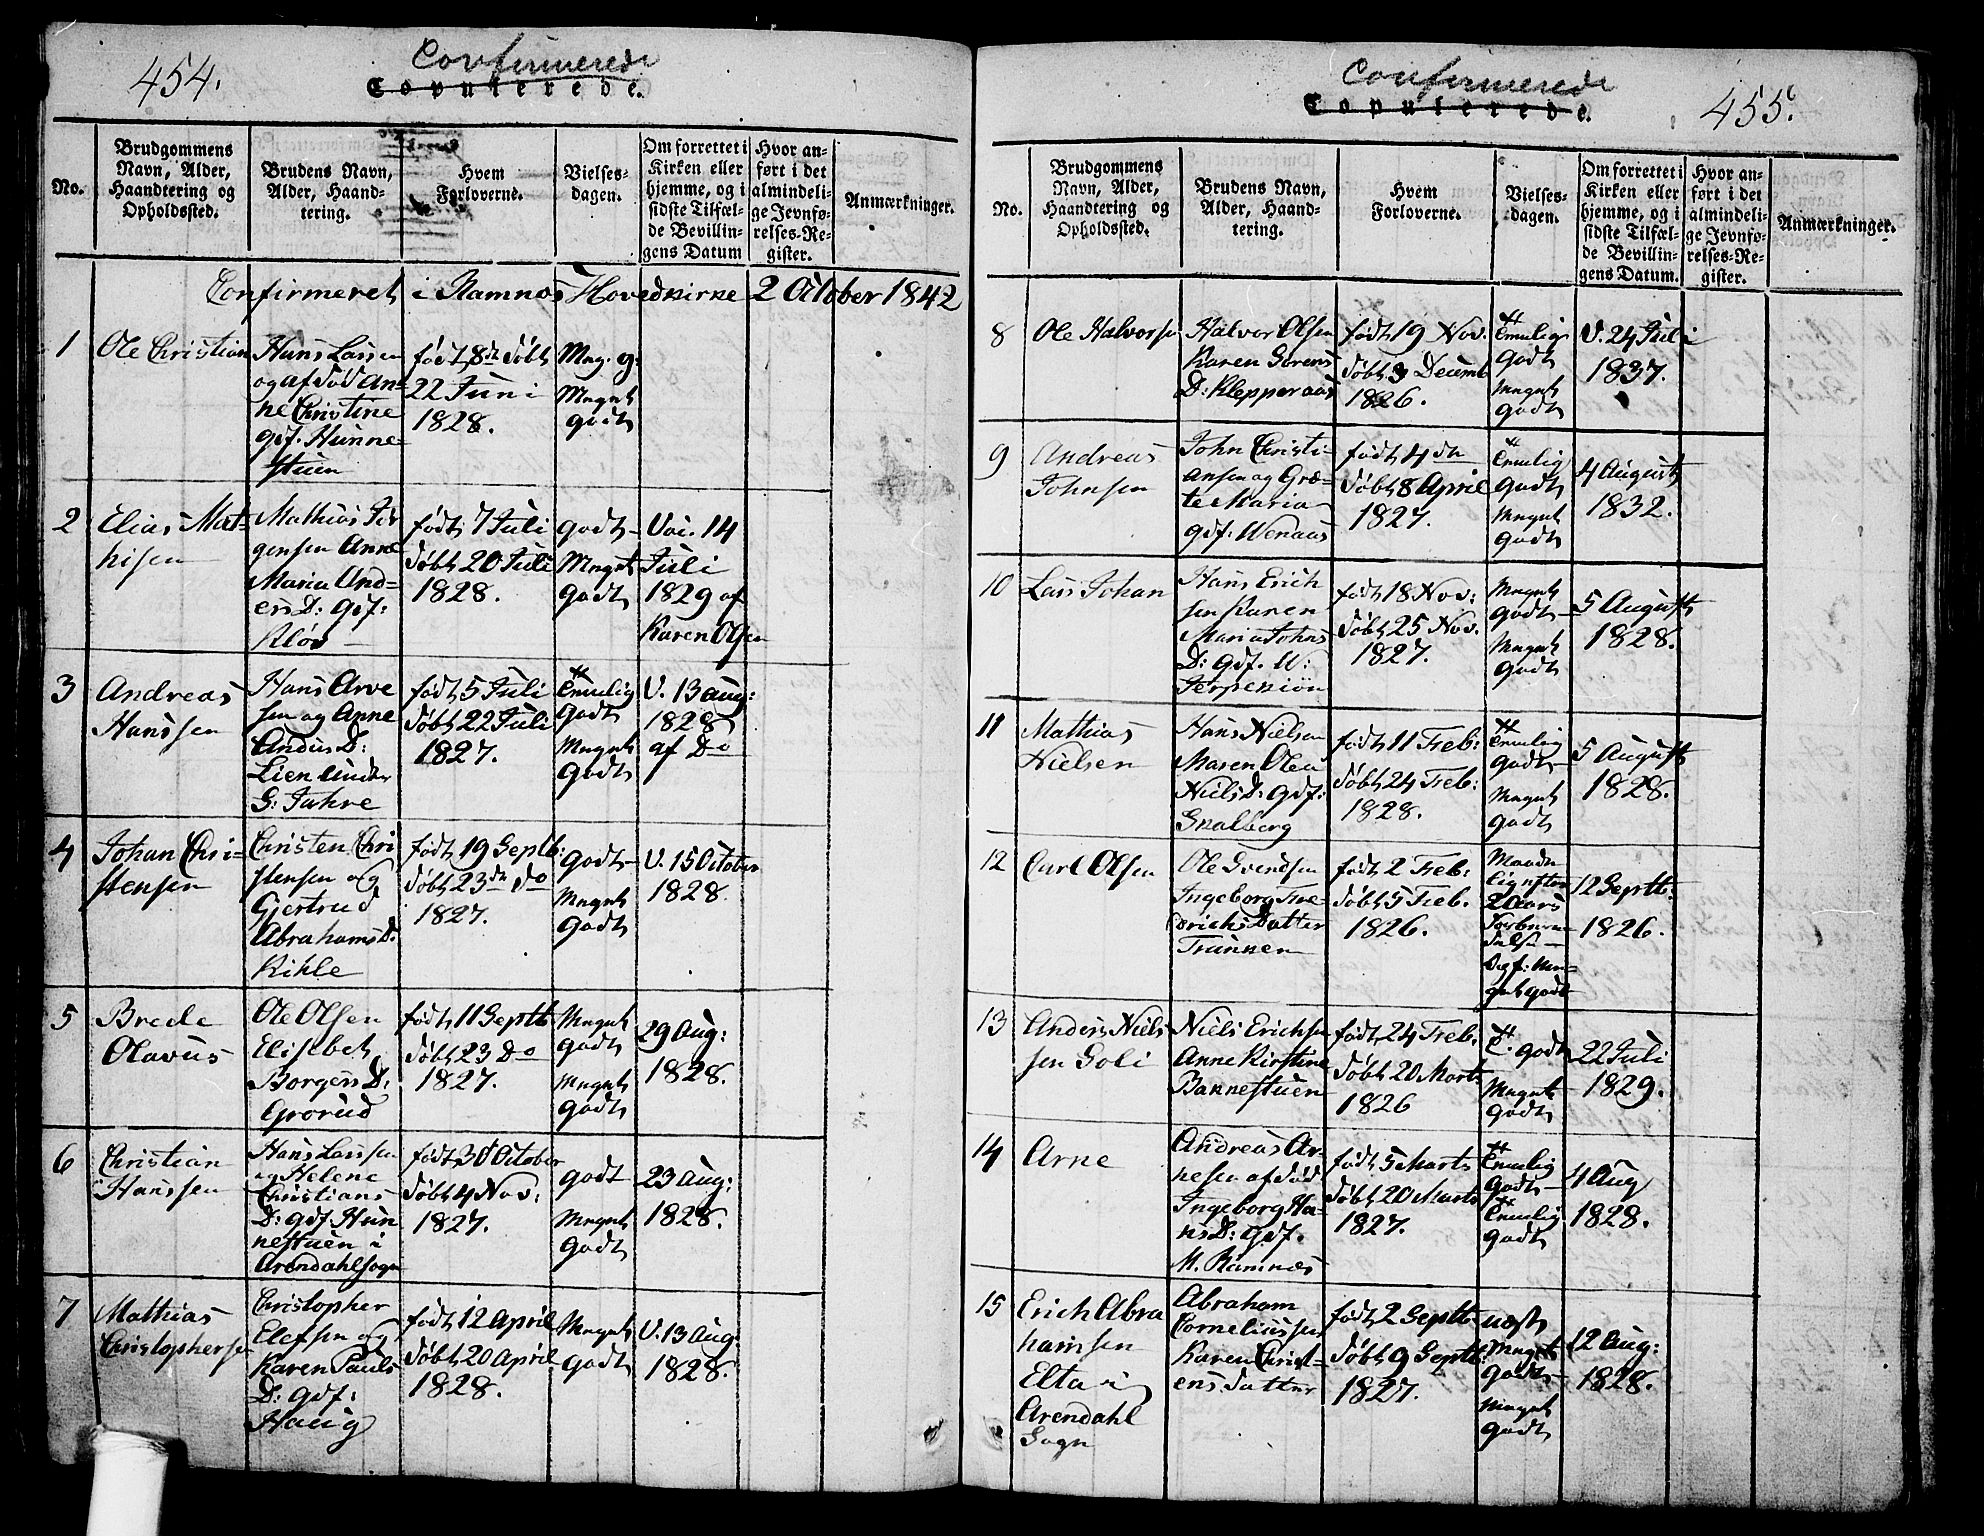 454.
Confirmerede
Copulerede.
No.
Brudgommens
Navn, Alder,
Haandtering og
Opholdssted.
Brudens Navn,
Alder, Haand-
tering.
Hvem
Forloverne.
Vielses-
dagen.
Om forrettet i
Kirken eller
hjemme, og i
sidste Tilfæl-
de Bevillin-
gens Datum
Hvor an-
ført i det
almindeli-
ge Jevnfø-
relses-Re-
gister.
Anmærkninger.
Confirmeret i Ramnæs Hovedkirke 2 October 1842
1
Ole Christian
Hans Larsen
og af død An-
ne Christine
gdf. Hunne-
stuen
født 8de døbt
22 Juni
1828.
Mag. g:
Maget
godt
2
Elias Mat-
hisen
Mathias Jør
gensen Anne
Maria And-
ers D: gdf:
Kløv
født 7 Juli
døbt 20 Juli
1828.
godt
Maget
godt
Vac. 14
Juli
1829 af
Karen Olsen
3
Andreas
Hanssen
Hans Arve
sen og Anne
Anders D:
Lien under
S: Fahre
født 5 Juli
døbt 22 Juli
1827.
Temelig
godt
Maget
godt
V. 13 Aug:
1828
af Do
4
Johan Chri-
stensen
Christen Chri
stensen og
Gjertrud
Abrahams D.
Kihle
født 19 Septb:
døbt 23de do
1827.
godt
Maget
godt
V. 15 October
1828.
5
Brede
Olavus
Ole Olsen
Elisebet
Borgers D:
Grorud
født 11 Septb
døbt 23 Do
1827.
Maget
godt
Maget
godt
29 Aug:
1828.
6
Christian
Hanssen
Hans Larssen
og Helene
Christians
D: gdf. Hun
nestuen i
Arendahl sogn
født 30 October
døbt 4 Nov:
1827.
godt
Maget
godt
23 Aug:
1828.
7
Mathias
Christophersen
Christopher
Elefsen og
Karen Pauls
D: gdf:
Haug
født 12 April
døbt 20 April
1828.
Maget
godt
V. 13 Aug:
1828.
Confirmerede
Copulerede.
455.
No.
Brudgommens
Navn, Alder,
Haandtering og
Opholdssted.
Brudens Navn,
Alder, Haand-
tering.
Hvem
Forloverne.
Vielses-
dagen.
Om forrettet i
Kirken eller
hjemme, og i
sidste Tilfæl-
de Bevillin-
gens Datum.
Hvor an-
ført i det
almindeli-
ge Jevnfø-
relses-Re-
gister.
Anmærkninger.
8
Ole Halvorsen
Halvor Olsen
Karen Sørens
D: Klepperaas
født 19 Nov.
døbt 3 Decemb
1826.
Temelig
godt
Maget
godt
V. 24 Juli
1837.
9
Andreas
Johnsen
John Christi-
ansen og Græ-
te Maria
gdf. Wenaas
født 4de
døbt 8 April
1827.
Temelig
godt
Maget
godt
4 August
1832.
10
Lars Johan
Hans Erich
sen Karen
Maria Johns
D: gdf. W:
Jerpekiøn
født 18 Nov:
døbt 25 Nov.
1827.
Maget
godt
Maget
godt
5 August
1828.
11
Mathias
Nielsen
Hans Nielsen
Maren Olea
Niels D: gdf:
Skalberg
født 11 Feb:
døbt 24 Feb:
1828.
Temelig
godt
Maget
godt
5 August
1828.
12
Carl Olsen
Ole Svendsen
Ingeborg Fre-
derichs Datter
Trunken
født 2 Feb:
døbt 5 Feb.
1826.
2 Aars
12 Septb:
1826.
13
Anders Niels
sen Soli
Niels Erichsen
Anne Kirstine
Bakkestuen
født 24 Feb:
døbt 20 Marts
1826
T. godt
Maget
godt
22 Juli
1829.
14
Arne
Andreas Ar-
nesen af død
Ingeborg Ha-
ns D: gdf.
M. Ramnæs
født 5 Marts
døbt 20 Marts
1827.
Temelig
godt
Temelig
godt
4 Aug
1828.
15
Erich Abra
hamsen
Elta i
Arendahl
Sogn
Abraham
Corneliussen
Karen Christ-
ens datter
født 2 Septb
døbt 9 Septb:
1827.
næst
Maget
godt
Maget
godt
12 Aug:
1828.